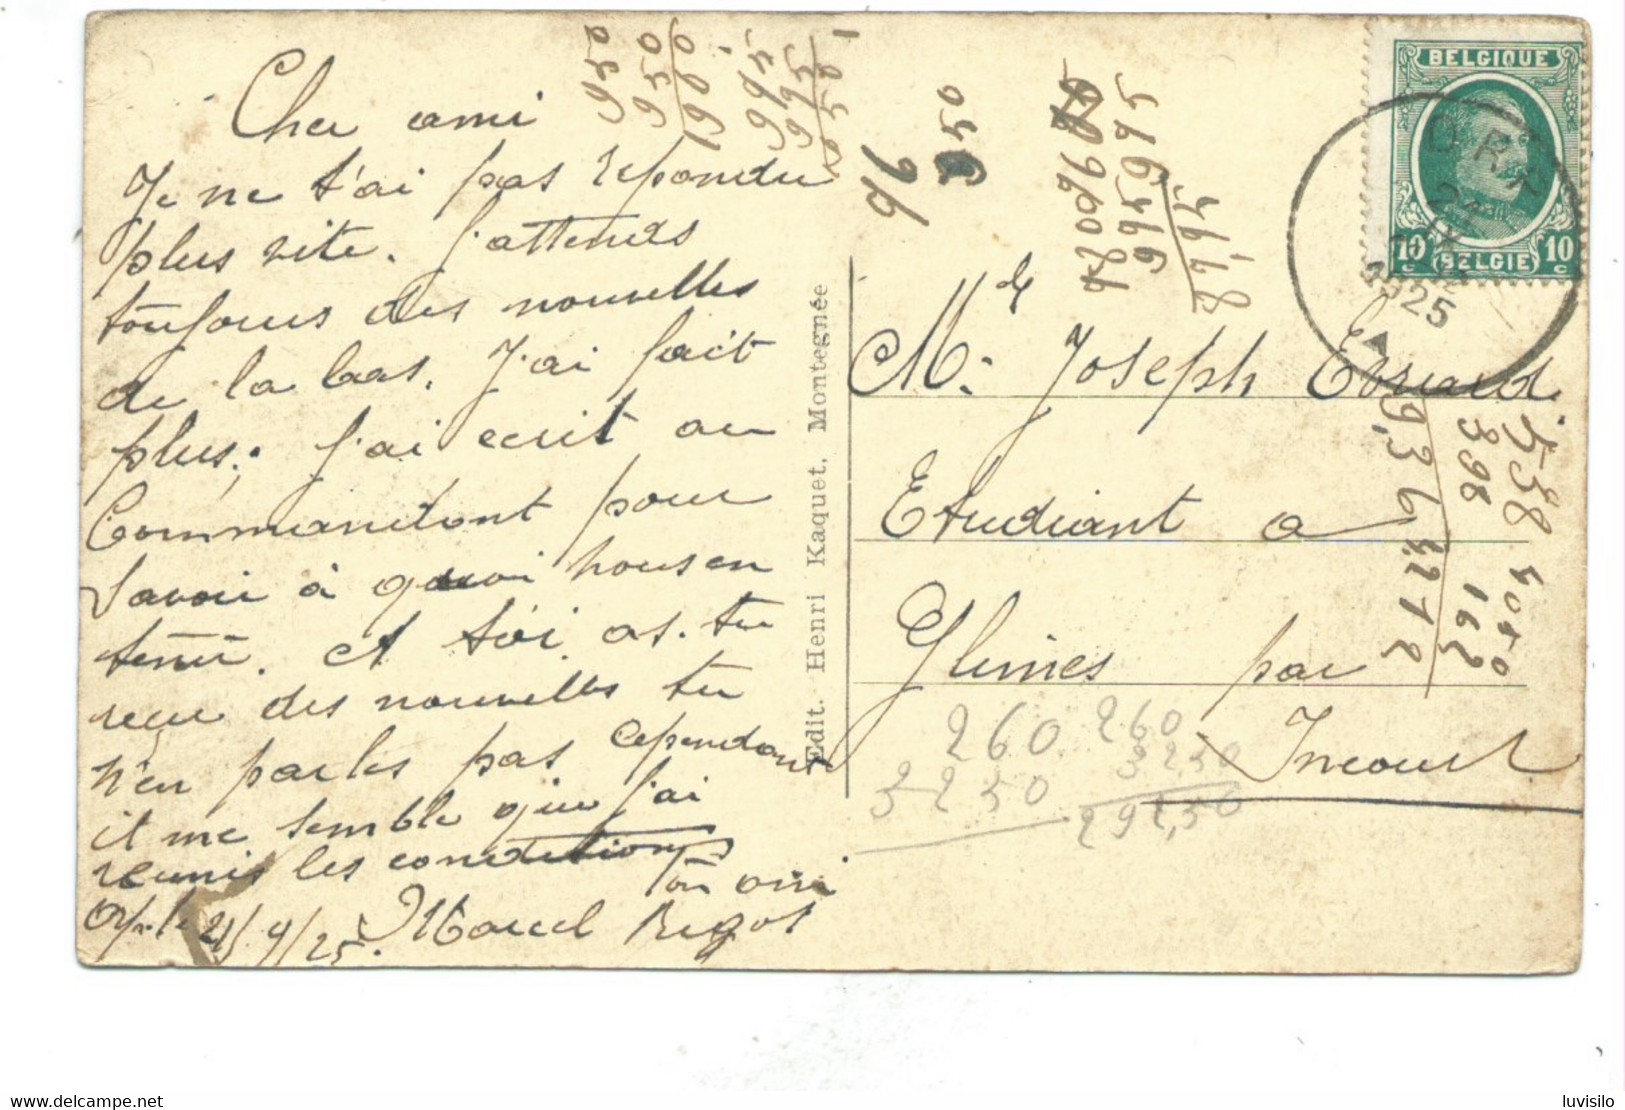 Cher ami
Je ne t'ai pas repondu
plus vite. J'attends
toujours des nouvelles
de la bas. J'ai fait
plus; j'ai ecrit au
Commandant pour
savoir à quoi nous en
tenir. et toi as-tu
reçu des nouvelles tu
n'en parles pas cependant
il me semble que j'ai
reunis les conditions
Ton ami
21/9/25. Marcel Rigot
Edit. Henri Kaquet, Montegnée
BELGIQUE
10c 10c
BELGIE
ORP
1925
Mr. Joseph Evrard
Etudiant a
Glimes par
Incourt
950
950
1900
995
995
96
950
538
398
936
4050
162
4212
260
3250
260
32,50
292,50
luvisilo